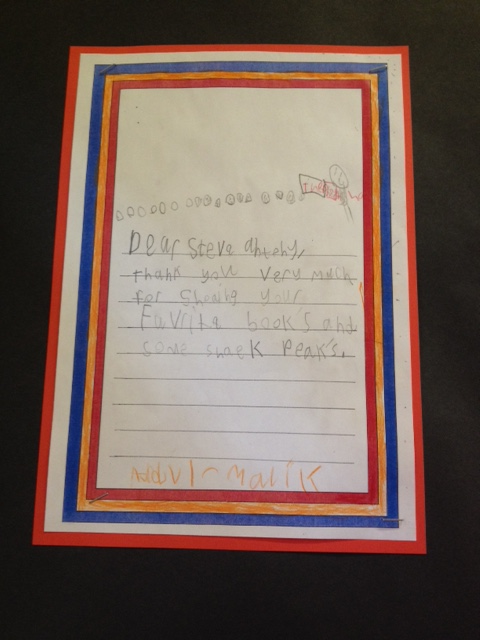 Dear Steve Antony,
thank you very much
for shering your
Favrita book's and
some sneek Peak's.
Abdul-Malik